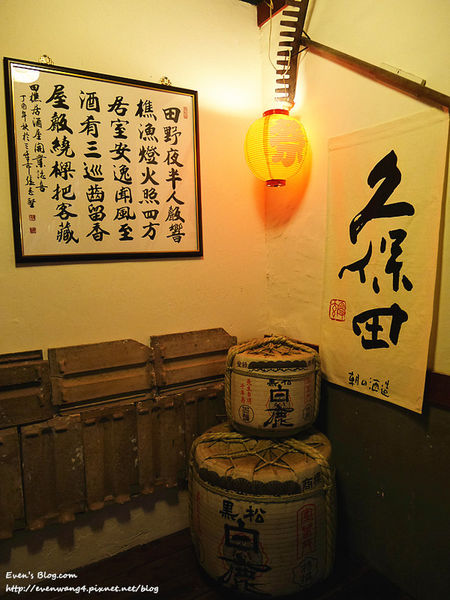 田野夜半人聲響
樵漁燈火照四方
居室安逸聞風至
酒肴三巡齒留香
屋聲繞樑把客藏
田樵居酒屋開業誌喜
丁酉年秋於
祭
久保田
朝日酒造
黒松
白鹿
黒松
白鹿
Even's Blog.com
http://evenwang4.pixnet.net/blog